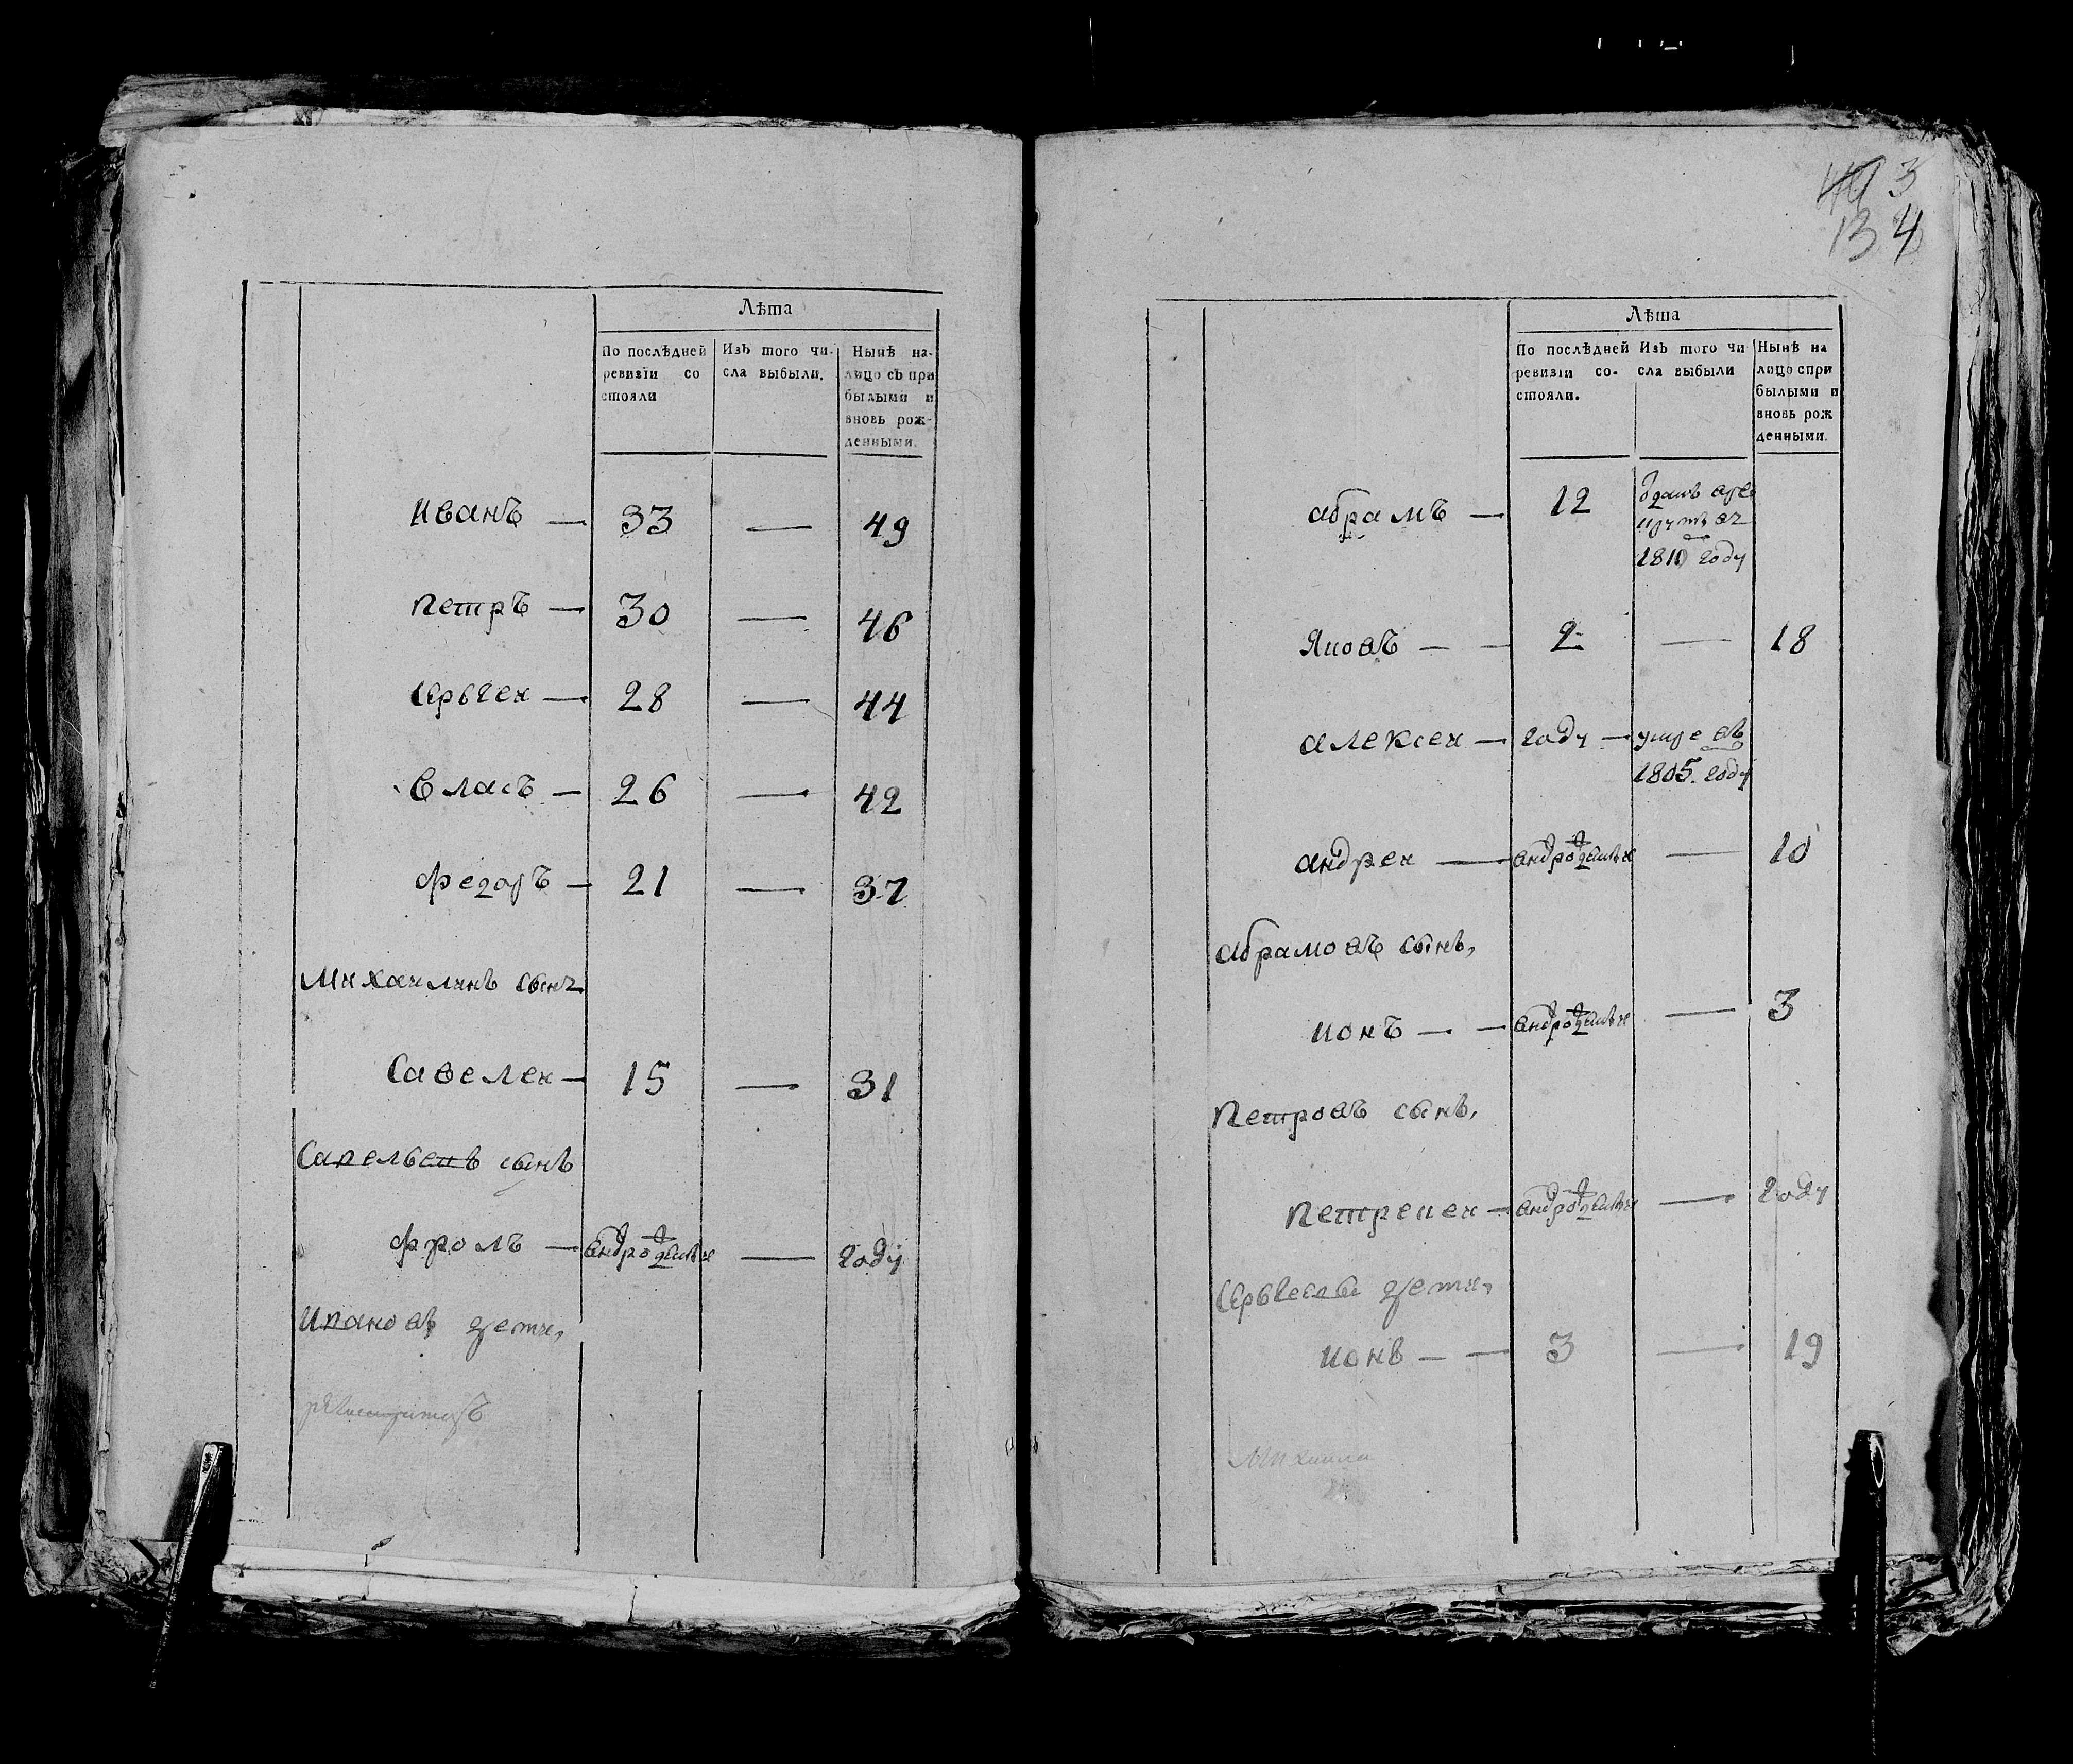 Лѣта
По послѣдней
ревизіи со
стояли
Изъ того чи-
сла выбыли.
Нынѣ на-
лицо съ при
былыми и
вновь рож-
денными.
Иванъ — 33 — 49
Петръ — 30 — 46
Сергеи — 28 — 44
Власъ — 26 — 42
Федоръ — 21 — 37
Михаилинъ сынъ
Савелеи — 15 — 31
Савельевъ сынъ
Фролъ — — году
Ивановъ дети,
493
134
Лѣта
По послѣдней
ревизіи со-
стояли.
Изъ того чи
сла выбыли
Нынѣ на
лицо спри
былыми и
вновь рож
денными.
Абрамъ — 12
1810 году
Яковъ — — 2 — 18
Алексеи — году —
1805 году
Андреи — — 10
Абрамовъ сынъ,
Ионъ — — — 3
Петровъ сынъ,
— — году
Сергеевы дети,
Ионъ — — 3 — 19